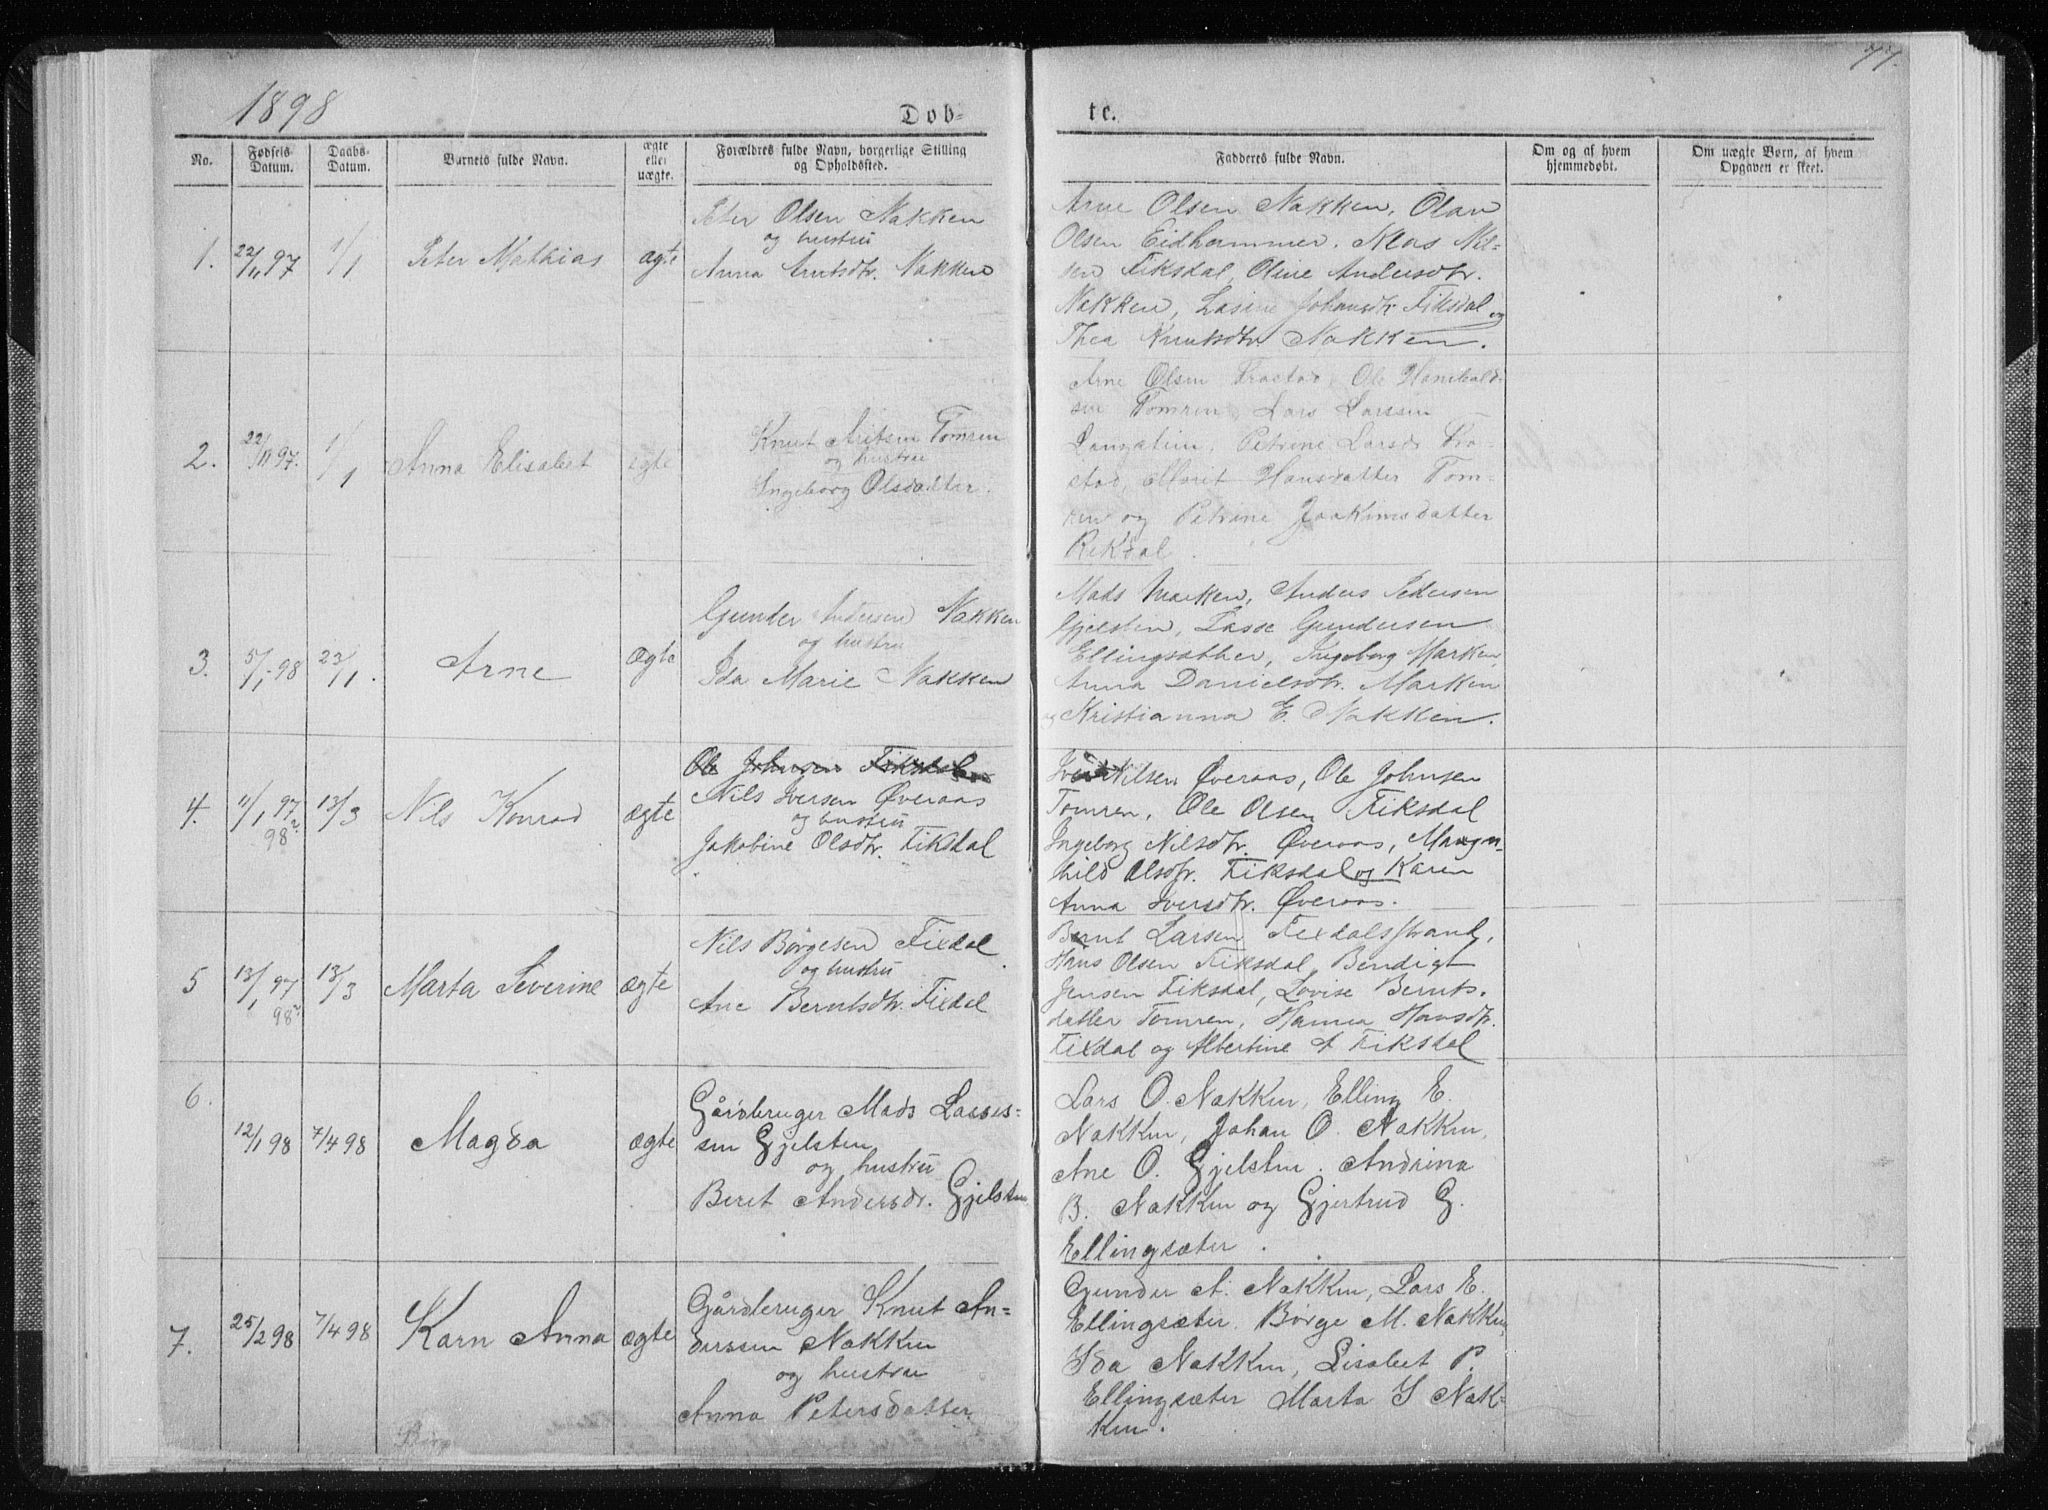 1898
77.
Døb-
te.
No.
Fødsels-
Datum.
Daabs-
Datum.
Barnets fulde Navn.
ægte
eller
uægte.
Forældres fulde Navn, borgerlige Stilling
og Opholdssted.
Fadderes fulde Navn.
Om og af hvem
hjemmedøbt.
Om uægte Børn, af hvem
Opgaven er skeet.
1. 22/11 97 1/1 Peter Mathias ægte
Peter Olsen Nakken
og hustru
Anna Knutsdtr. Nakken
Arne Olsen Nakken, Olav
Olsen Eidhammer, Mas Nil-
sen Fiksdal, Oline Andersdtr.
Nakken, Lasine Johansdtr Fiksdal og
Thea Knutsdtr Nakken.
2. 22/11 97. 1/1 Anna Elisabet ægte
Knut Tomren
og hustru
Ingeborg Olsdatter.
Arne Olsen Frostad, Ole Hanibald-
sen Tomren, Lars Larssen
Petrine Larsdr Fro-
stad, Marit Hansdatter Tom-
ren og Petrine Joakimsdatter
Rekdal.
3. 5/1-98 23/1. Arne ægte
Gunder Andersen Nakken
og hustru
Ida Marie Nakken
Mads Marken, Anders Pedersen
Gjelsten, Lasse Gundersen
Ellingsæther, Ingeborg Marken,
Anna Danielsdtr. Marken
og Kristianna E. Nakken.
4. 11/1 97 13/3 Nils Konrad ægte
98?
Ole Johnsen Fiksdal
Nils Iversen Øveraas
og hustru
Jakobine Olsdtr. Fiksdal
Iver Nilsen Øveraas, Ole Johnsen
Tomren, Ole Olsen Fiksdal
Ingeborg Nilsdtr. Øveraas, Magn-
hild Olsdtr. Fiksdal og Karen
Anna Iversdtr. Øveraas.
5 13/1 97 13/3 Marta Severine ægte
98?
Nils Børgesen Fixdal
og hustru
Ane Berntsdtr. Fixdal
Bernt Larsen Fixdalsstrand,
Hans Olsen Fiksdal, Bendigt
Jensen Fiksdal, Lovise Bernts-
datter Tomren, Hanna Hansdtr.
Fixdal og Albertine A Fiksdal
6. 12/1 98 7/4 98 Magda ægte
Gårdbruger Mads Lasses-
sen Gjelsten
og hustru
Beret Andersdr. Gjelsten
Lars O. Nakken, Elling E.
Nakken, Johan O. Nakken,
Ane O. Gjelsten. Andrina
B. Nakken og Gjertrud G.
Ellingsæter.
7. 25/2 98 7/4 98 Karn Anna ægte
Gårdbruger Knut An-
derssen Nakken
og hustru
Anna Petersdatter
Gunder A. Nakken, Lars E.
Ellingsæter. Børge M. Nakken,
Ida Nakken, Lisabet P.
Ellingsæter Marta I Nak-
ken.